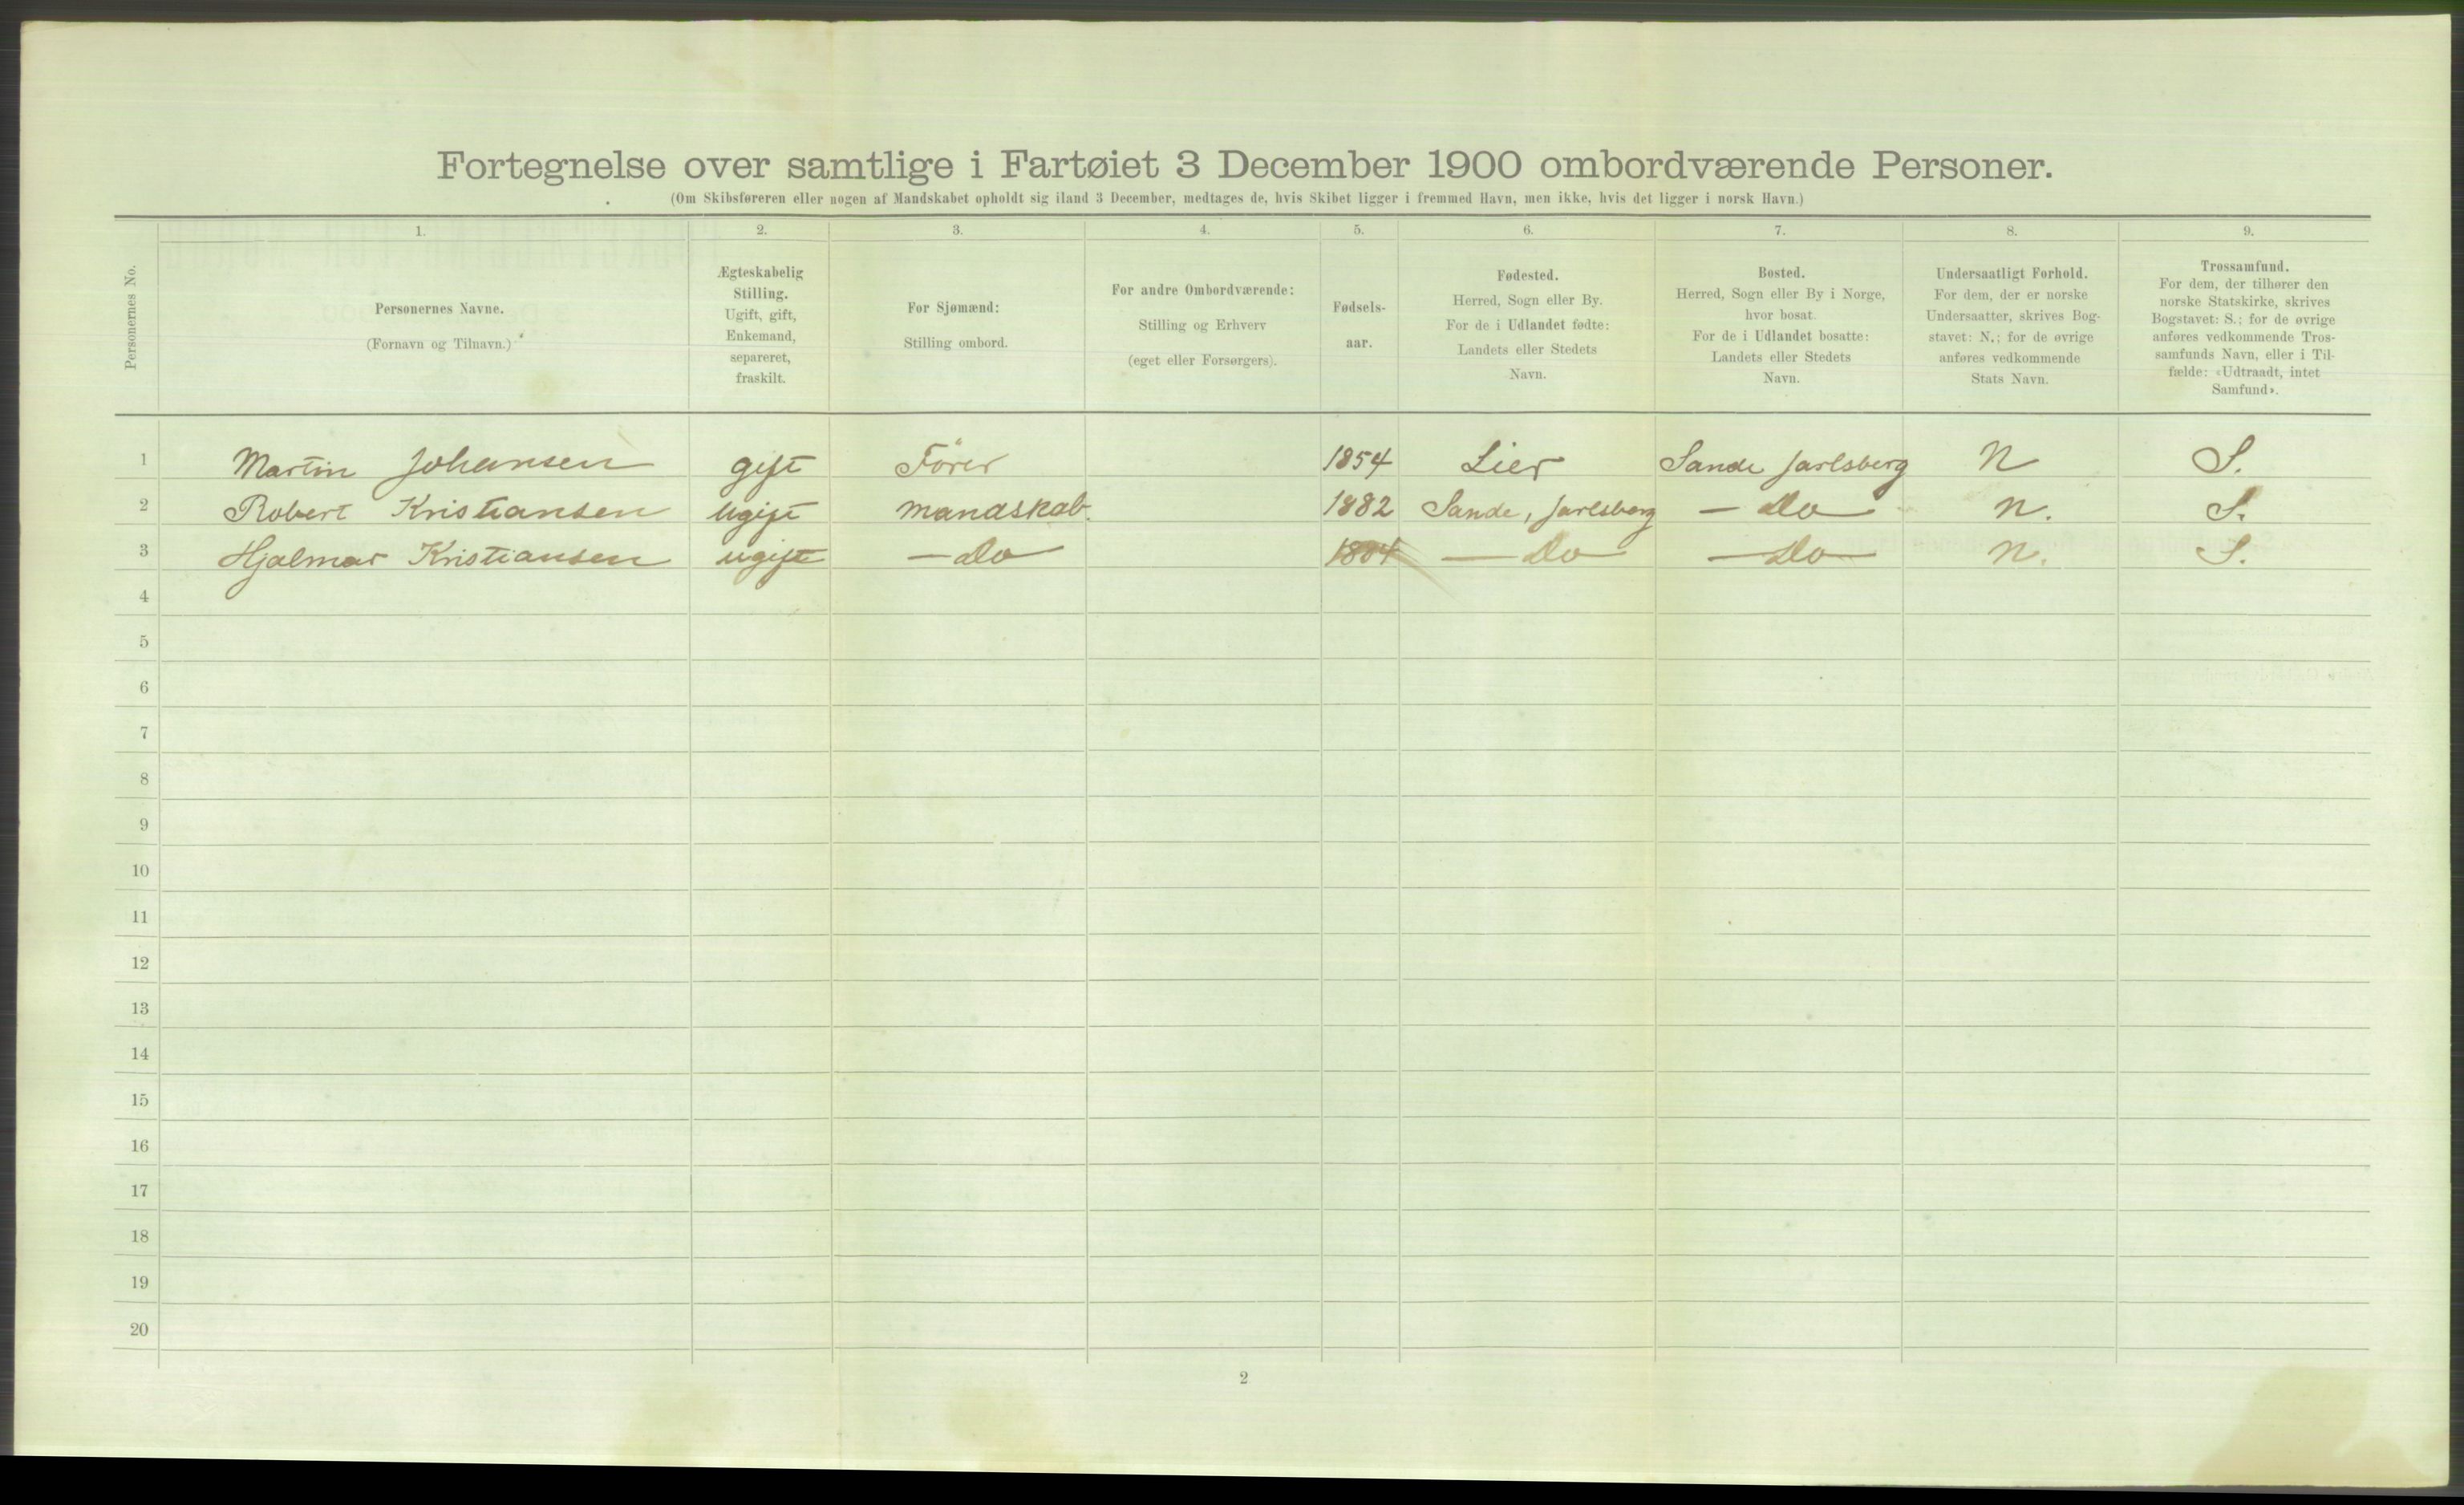 Fortegnelse over samtlige i Fartøiet 3 December 1900 ombordværende Personer.
(Om Skibsføreren eller nogen af Mandskabet opholdt sig iland 3 December, medtages de, hvis Skibet ligger i fremmed Havn, men ikke, hvis det ligger i norsk Havn.)
Personernes No.
1.
Personernes Navne.
(Fornavn og Tilnavn.)
2.
Ægteskabelig
Stilling.
Ugift, gift,
Enkemand,
separeret,
fraskilt.
3.
For Sjømænd:
Stilling ombord.
4.
For andre Ombordværende:
Stilling og Erhverv
(eget eller Forsørgers).
5.
Fødsels-
aar.
6.
Fødested.
Herred, Sogn eller By.
For de i Udlandet fødte:
Landets eller Stedets
Navn.
7.
Bosted.
Herred, Sogn eller By i Norge,
hvor bosat.
For de i Udlandet bosatte:
Landets eller Stedets
Navn.
8.
Undersaatligt Forhold.
For dem, der er norske
Undersaatter, skrives Bog-
stavet: N.; for de øvrige
anføres vedkommende
Stats Navn.
9.
Trossamfund.
For dem, der tilhører den
norske Statskirke, skrives
Bogstavet: S.; for de øvrige
anføres vedkommende Tros-
samfunds Navn, eller i Til-
fælde: «Udtraadt, intet
Samfund».
1 Martin Johansen gift Förer 1854 Lier Sande Jarlsberg N S.
2 Robert Kristiansen ugift mandskab. 1882 Sande, Jarlsberg — Do N. S.
3 Hjalmar Kristiansen ugift — Do 1884 — Do — Do N. S.
4
5
6
7
8
9
10
11
12
13
14
15
16
17
18
19
20
2